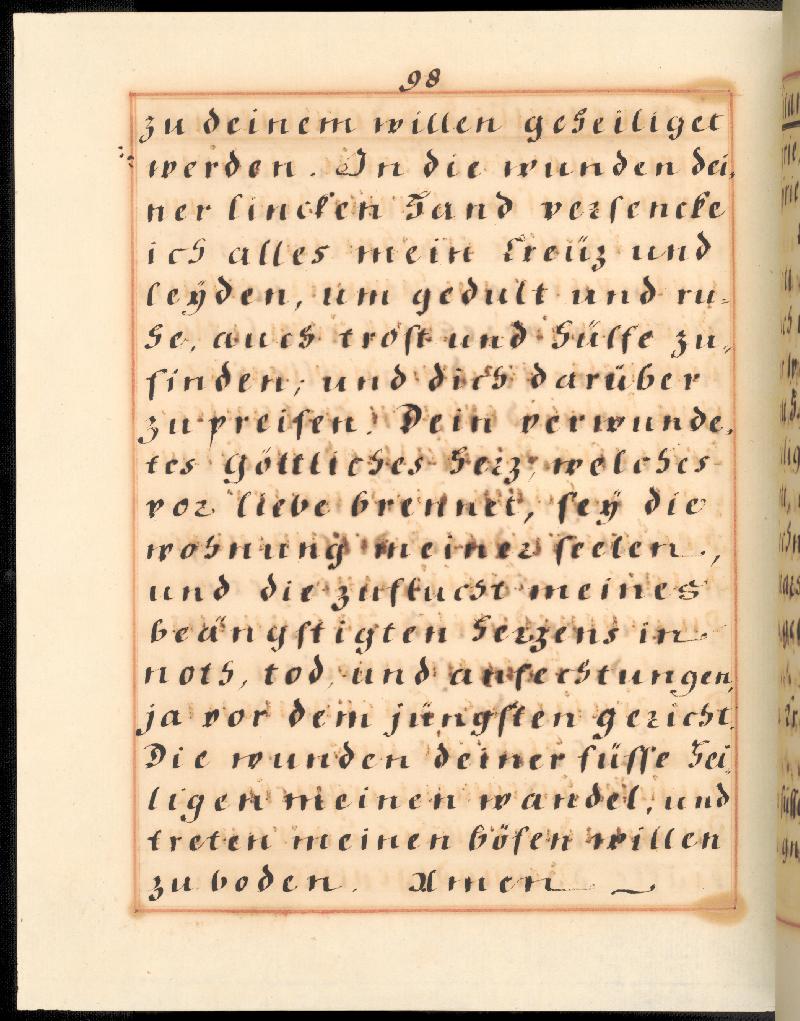 98
zu deinem willen geheiliget
werden. In die wunden dei-
ner lincken Hand versencke
ich alles mein Creüz und
leÿden, um gedult und ru-
he, auch trost und hülfe zu-
finden, und dich darüber
zu preisen. Dein verwunde-
tes Göttliches Herz, welches
vor liebe brennet, seÿ die
wohnung meiner seelen,
und die zuflucht meines
beängstigten Herzens in
noth, tod, und anfechtungen,
ja vor dem jüngsten gericht.
Die wunden deiner füsse hei-
ligen meinen wandel, und
treten meinen bösen willen
zu boden. Amen